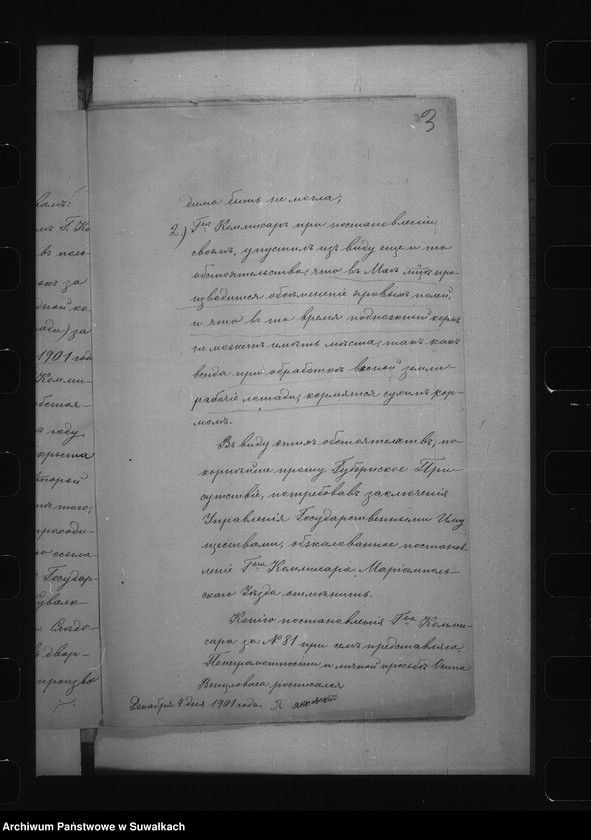 3
дима быть не могла;
2) Гнъ Коммисаръ при постановленіи
своемъ, упустилъ изъ виду еще и то
обстоятельство, что въ Маѣ мцѣ про-
изводится обсѣмененіе яровыхъ полей,
и что въ то время подножный кормъ
не можетъ имѣть мѣста, такъ какъ
всегда при обработкѣ весной земли-
рабочіе лошади, кормятся сухимъ кор-
момъ.
Въ виду этихъ обстоятельствъ, по-
корнѣйше прошу Губернское При-
сутствіе, потребовавъ заключенія
Управленія Государственными Иму
ществами, обжалованное постанов-
леніе Гна Коммисара Маріамполь-
скаго Уѣзда отмѣнить.
Копію постановленія Гна Комми-
сара за № 81 при семъ представляю.
По неграмотности и личной просьбѣ Осипа
росписался
Декабря 4 дня 1901 года. П
валъ:
въ поль-
за
ной ко-
за
1901 год
Комми-
обстоя-
году
крыта
второй
того,
проходи-
Государ-
Сувалк-
Слѣдо-
двор-
произво
Archiwum Państwowe w Suwałkach